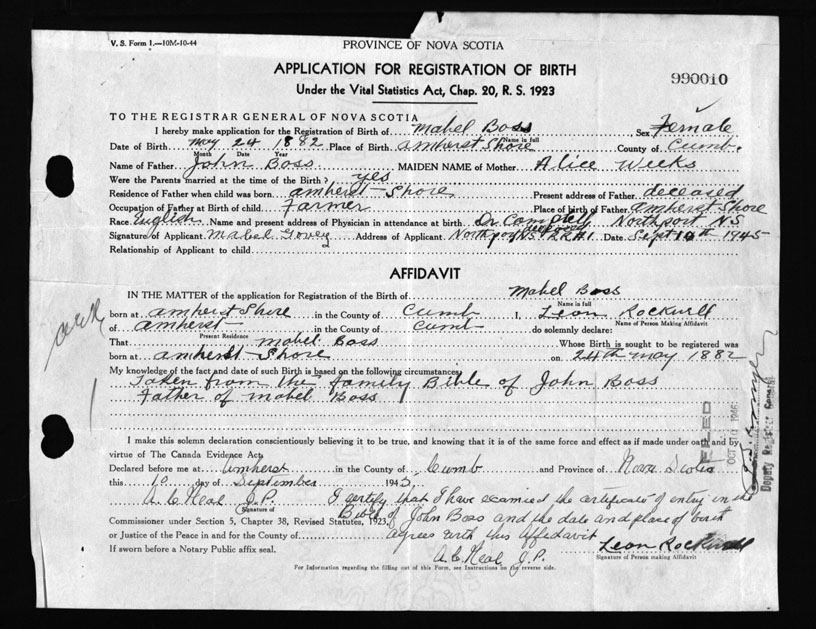 V. S. Form 1.—10M-10-44
PROVINCE OF NOVA SCOTIA
APPLICATION FOR REGISTRATION OF BIRTH
990010
Under the Vital Statistics Act, Chap. 20, R. S. 1923
TO THE REGISTRAR GENERAL OF NOVA SCOTIA
I hereby make application for the Registration of Birth of Mabel Boss Sex Female
Name in full
Date of Birth May 24 1882 Place of Birth Amherst Shore County of Cumb.
Month Date Year
Name of Father John Boss MAIDEN NAME of Mother Alice Weeks
Were the Parents married at the time of the Birth? yes
Residence of Father when child was born Amherst Shore Present address of Father deceased
Occupation of Father at Birth of child Farmer Place of birth of Father Amherst Shore
Race English Name and present address of Physician in attendance at birth Dr Northport N.S
Signature of Applicant Mabel Address of Applicant Northport Date Sept 10th 1945
Relationship of Applicant to child
AFFIDAVIT
IN THE MATTER of the application for Registration of the Birth of Mabel Boss
Name in full
born at Amherst Shore in the County of Cumb I, Leon Rockwell
Name of Person Making Affidavit
of Amherst in the County of Cumb do solemnly declare:
Present Residence
That Mabel Boss Whose Birth is sought to be registered was
born at Amherst Shore on 24th May 1882
My knowledge of the fact and date of such Birth is based on the following circumstances
Taken from the family Bible of John Boss
Father of Mabel Boss
I make this solemn declaration conscientiously believing it to be true, and knowing that it is of the same force and effect as if made under oath and by
virtue of The Canada Evidence Act.
Declared before me at Amherst in the County of Cumb and Province of Nova Scotia
this 10 day of September 1945,
A. C. Neal J.P. I certify that I have examined the certificate of entry in the
Signature of
Bible of John Boss and the date and place of birth
Commissioner under Section 5, Chapter 38, Revised Statutes, 1923,
or Justice of the Peace in and for the County of agrees with this Affidavit
If sworn before a Notary Public affix seal.
A. C. Neal J.P.
Leon Rockwell
Signature of Person making Affidavit
For Information regarding the filling out of this Form, see Instructions on the reverse side.
FILED
OCT 10 1946
Deputy Registrar General